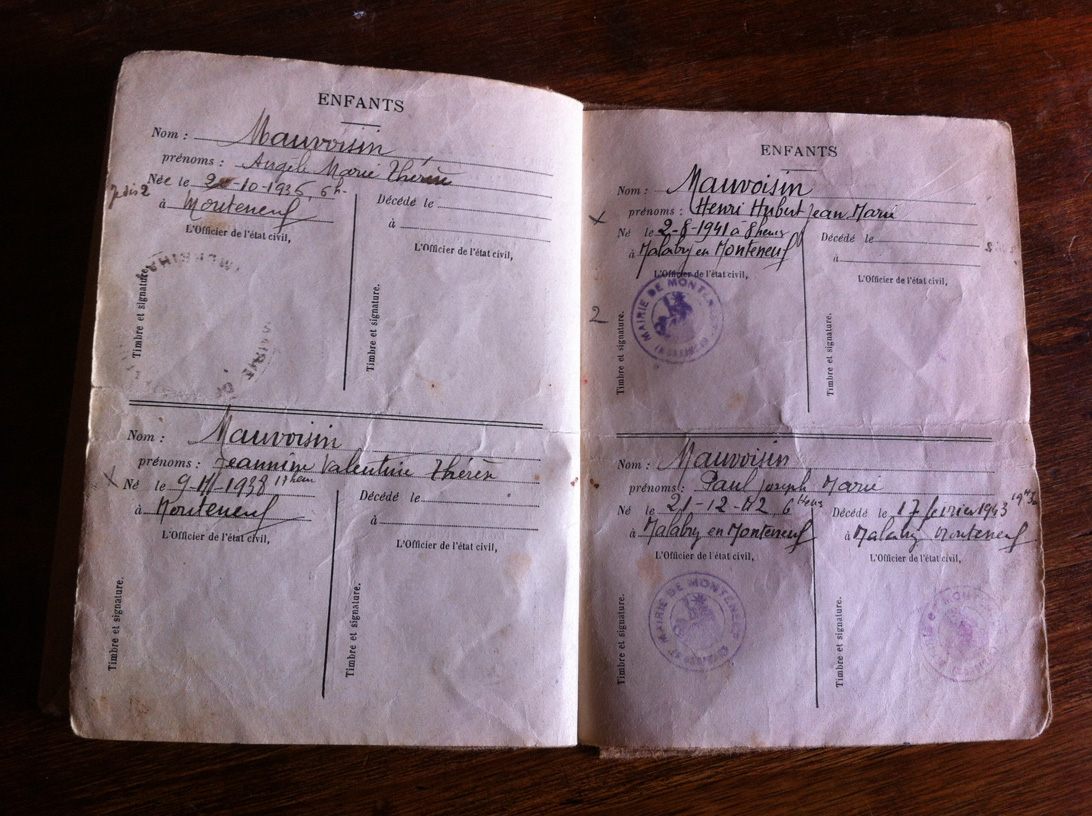 ENFANTS
Nom : Mauvoisin
prénoms : Angèle Marie Thérèse
Née le -10-1936, 6h.
à Monteneuf
Décédé le
à
L'Officier de l'état civil,
L'Officier de l'état civil,
Timbre et signature.
Timbre et signature.
MAIRIE DE
MORBIHAN
Nom : Mauvoisin
prénoms : Jeannine Valentine Thérèse
Né le 9- -1938 11 heures
à Monteneuf
Décédé le
à
L'Officier de l'état civil,
L'Officier de l'état civil,
Timbre et signature.
Timbre et signature.
ENFANTS
Nom : Mauvoisin
prénoms : Henri Hubert Jean Marie
Né le 2-8-1941 à 8 heures
à Malabry en Monteneuf
Décédé le
à
L'Officier de l'état civil,
L'Officier de l'état civil,
2
MAIRIE DE MONTENEUF
Timbre et signature.
Timbre et signature.
Nom : Mauvoisin
prénoms : Paul Joseph Marie
Né le 21-12-42 6 heures
à Malabry en Monteneuf
Décédé le 17 février 1943
à Malabry Monteneuf
L'Officier de l'état civil,
L'Officier de l'état civil,
MAIRIE DE MONTENEUF
Timbre et signature.
Timbre et signature.